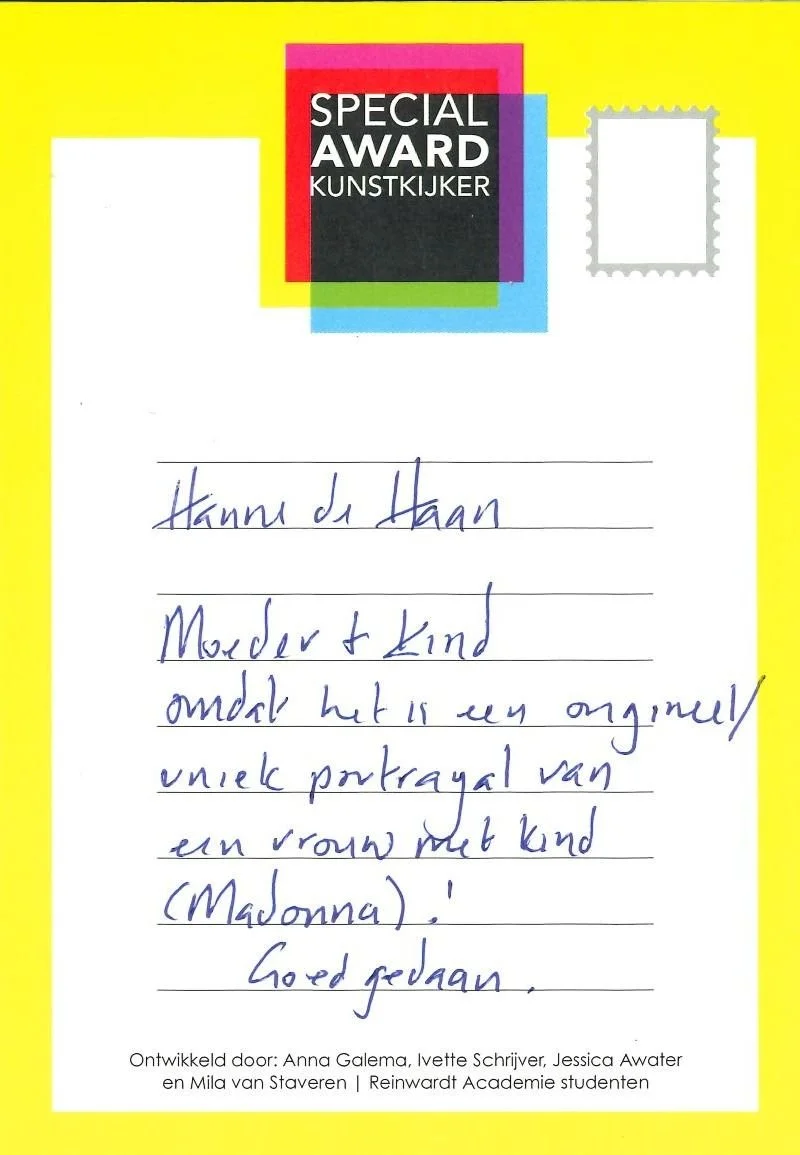 SPECIAL
AWARD
KUNSTKIJKER
Hanne de Haan
Moeder + kind
omdat het is een origineel/
uniek portrayal van
een vrouw met kind
(Madonna).!
Goed gedaan.
Ontwikkeld door: Anna Galema, Ivette Schrijver, Jessica Awater
en Mila van Staveren | Reinwardt Academie studenten